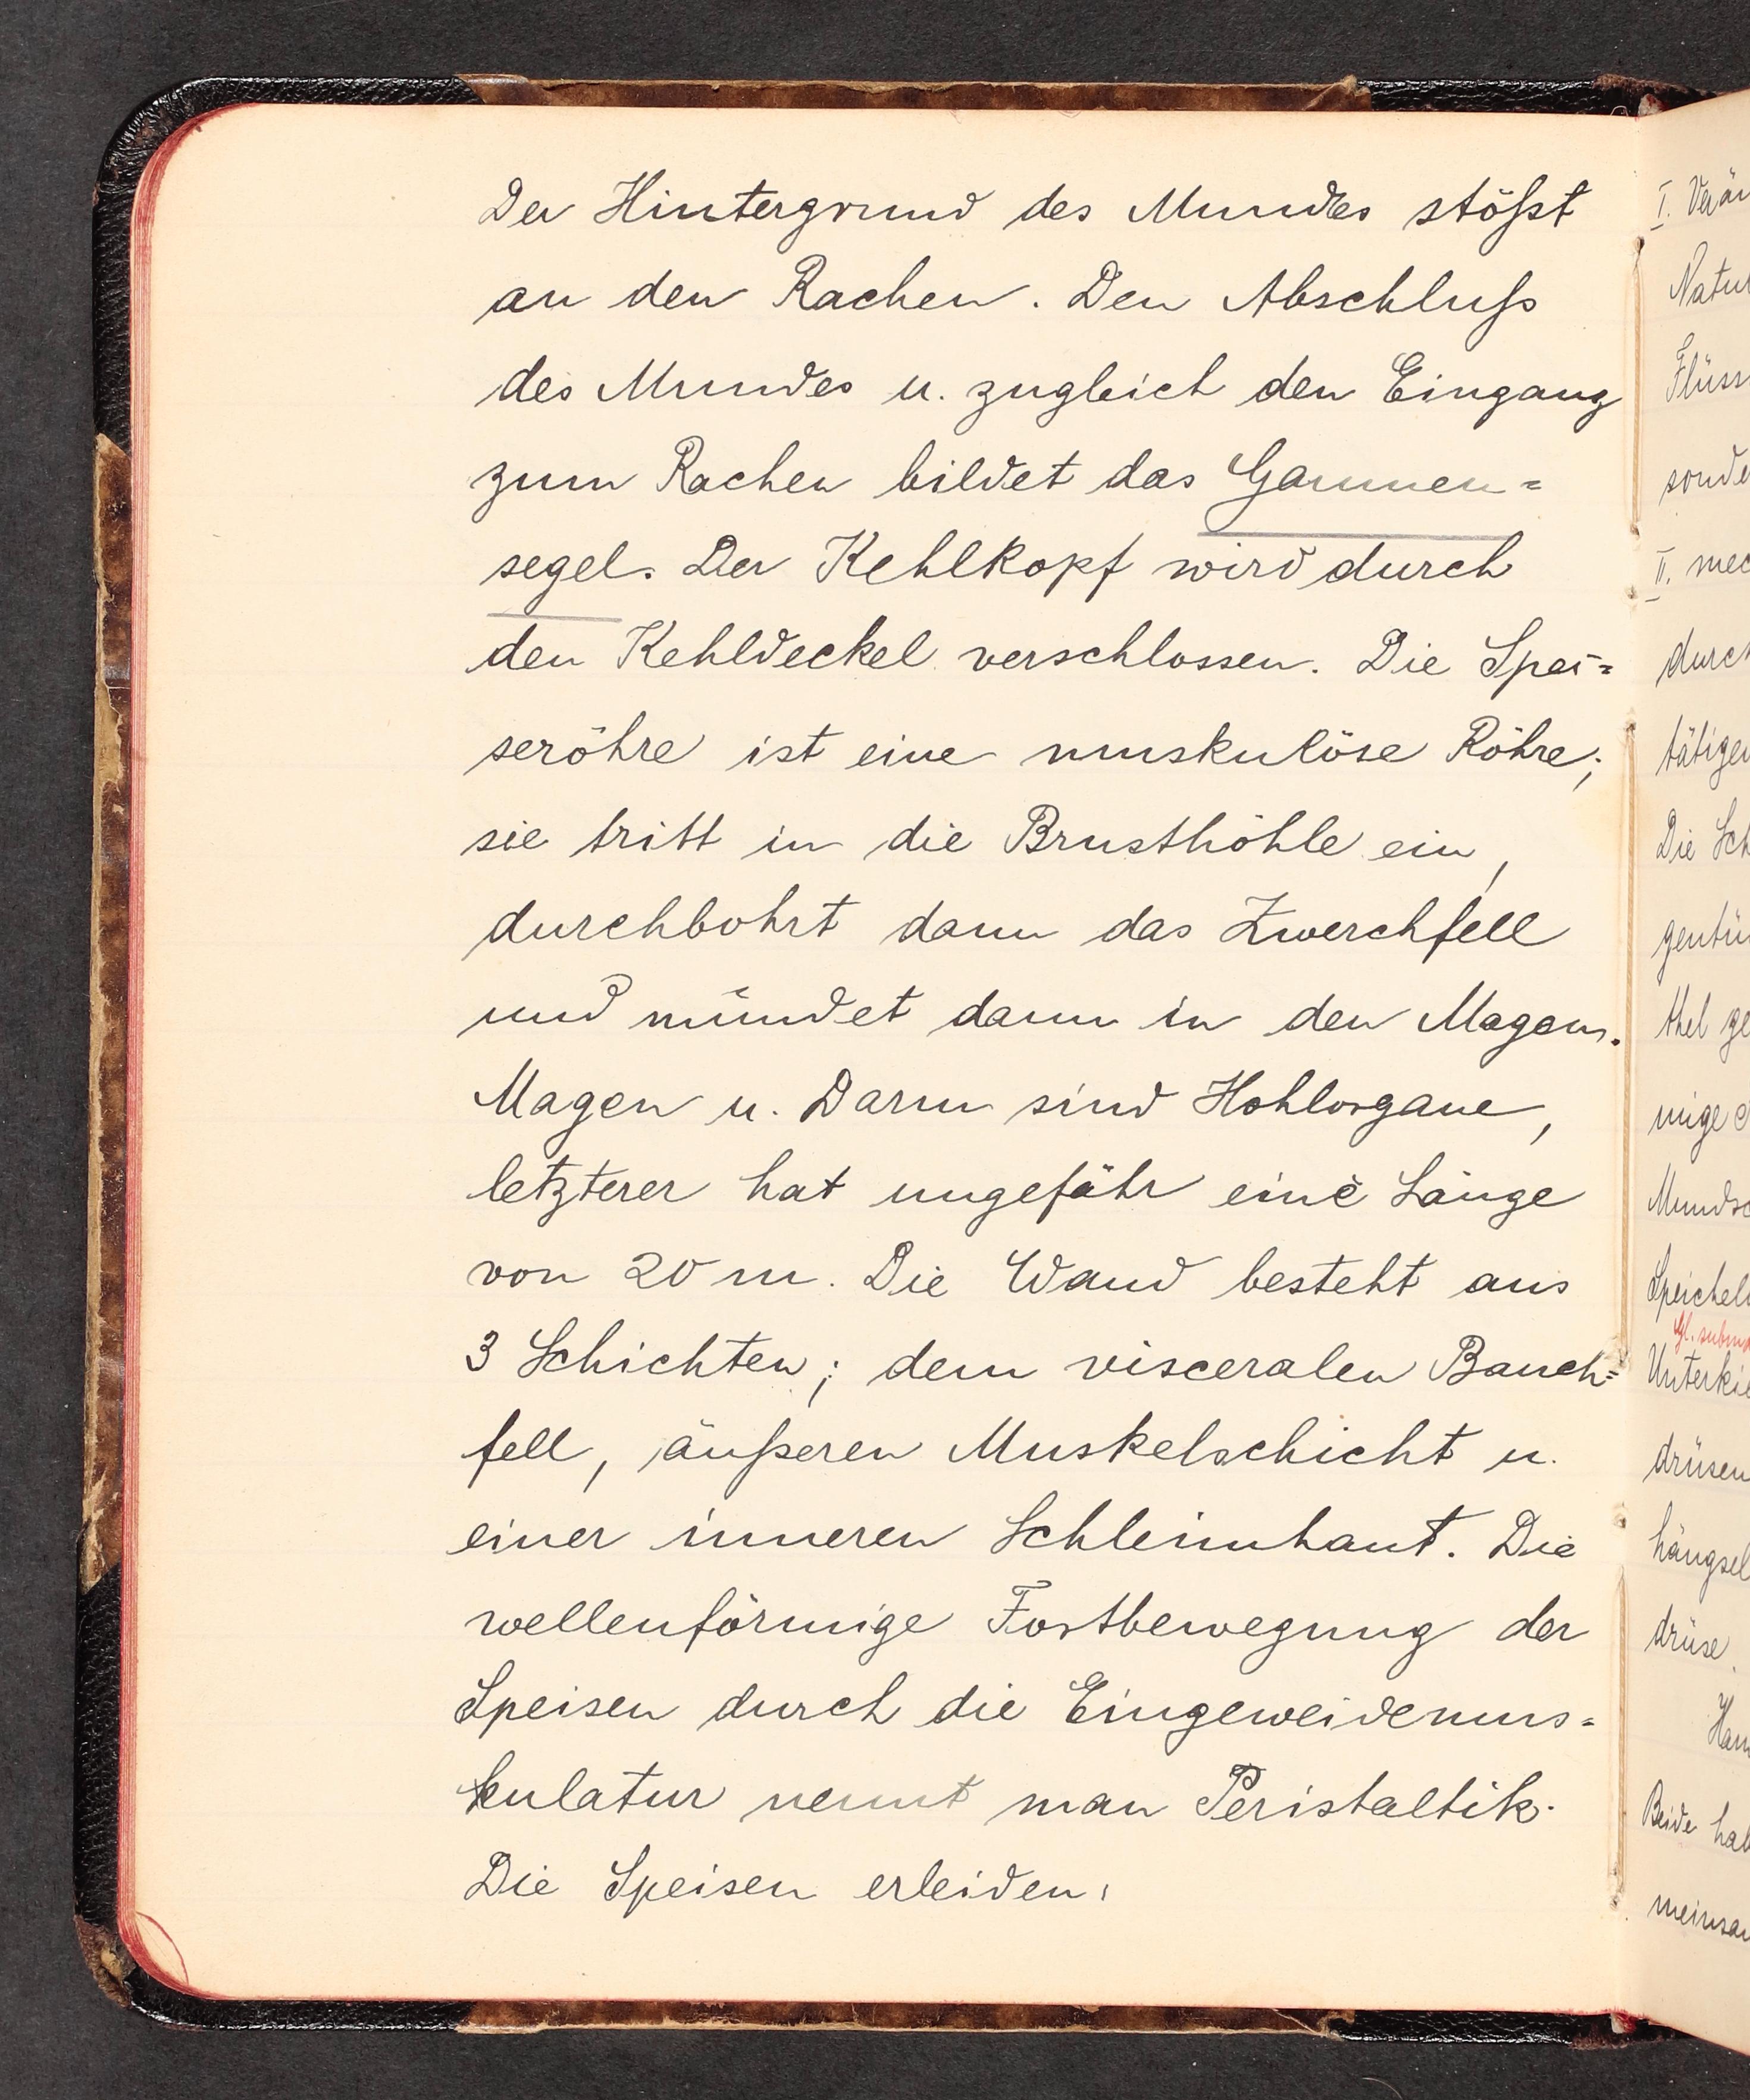 Der Hintergrund des Mundes stößt
an den Rachen. Den Abschluß
des Mundes u. zugleich den Eingang
zum Rachen bildet das Gaumen=
segel. Der Kehlkopf wird durch
den Kehldeckel verschlossen. Die Spei=
seröhre ist eine muskulöse Röhre;
sie tritt in die Brusthöhle ein,
durchbohrt dann das Zwerchfell
und mündet dann in den Magen.
Magen u. Darm sind Hohlorgane,
letzterer hat ungefähr eine Länge
von 20 m. Die Wand besteht aus
3 Schichten; dem visceralen Bauch=
fell, äußeren Muskelschicht u.
einer inneren Schleimhaut. Die
wellenförmige Fortbewegung der
Speisen durch die Eingeweidemus=
kulatur nennt man Peristaltik.
Die Speisen erleiden:
I. Verän
Natur
Flüss
sonde
II. mec
durch
tätigen
Die Sch
gentü
thel ge
nige
Mundsc
Speichel
Gl. subm
Unterkie
drüsen
hängsel
drüse.
Beide hab
meinsam